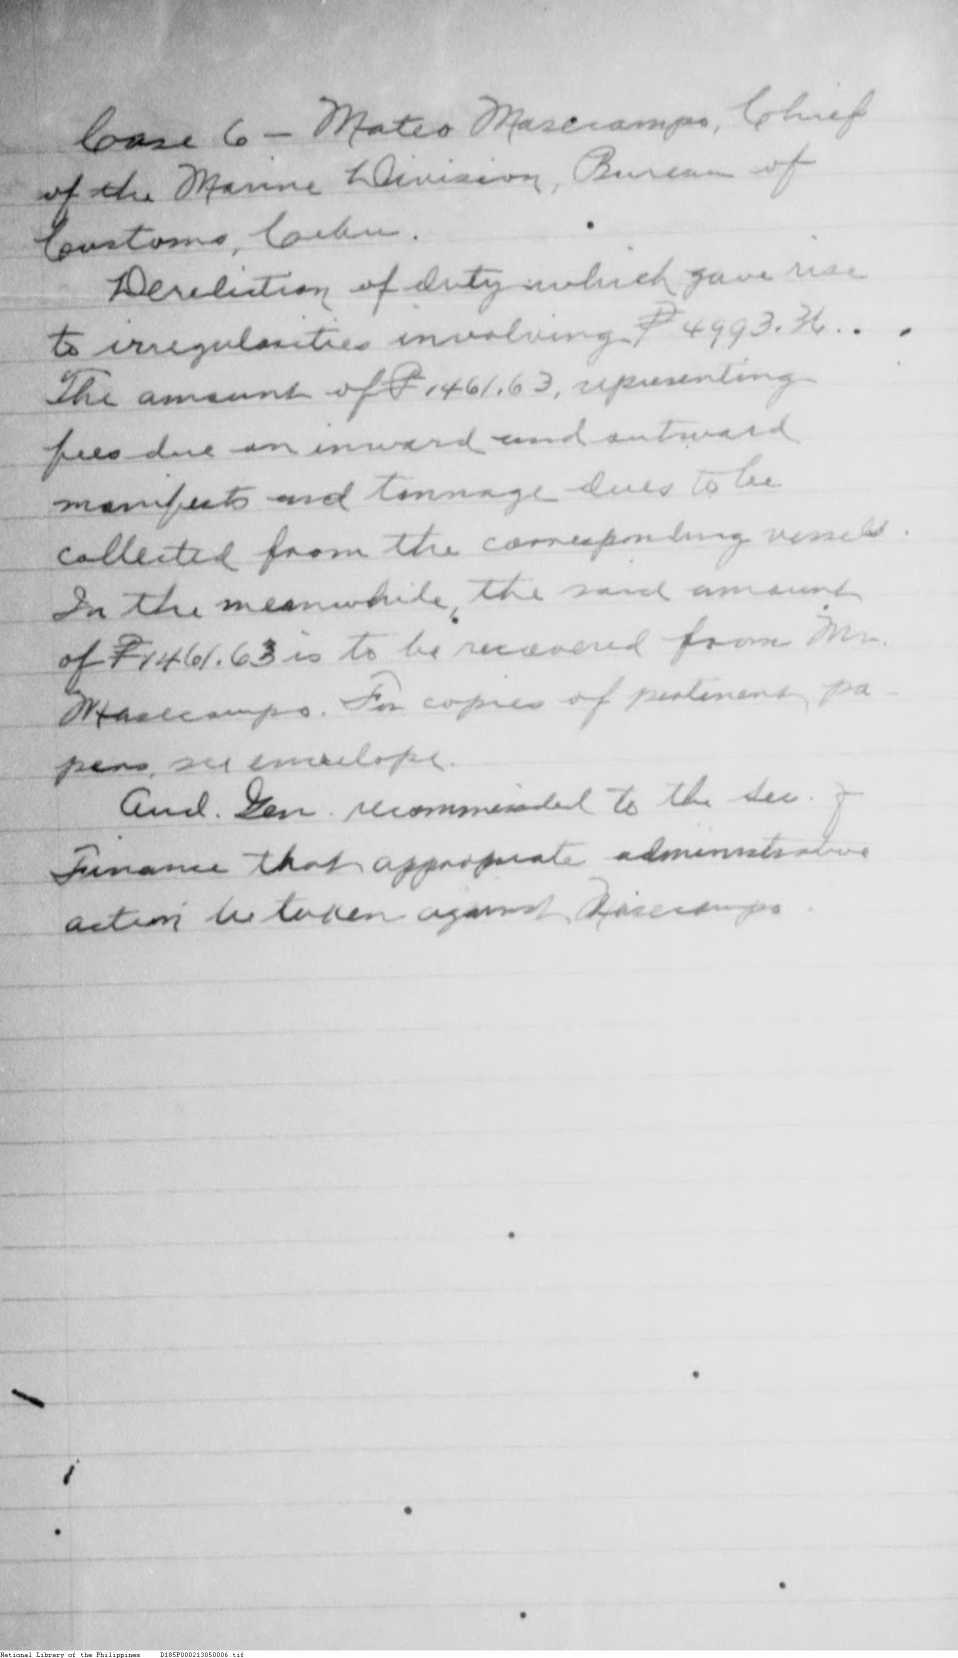 Case 6 — Mateo Masecampo, Chief
of the Marine Division, Bureau of
Customs, Cebu.
Dereliction of duty which gave rise
to irregularities involving ₱4993.36..
The amount of ₱1461.63, representing
fees due on inward and outward
manifests and tonnage dues to be
collected from the corresponding vessels.
In the meanwhile, the said amount
of ₱1461.63 is to be recovered from Mr.
Masecampo. For copies of pertinent pa-
pers, see envelope.
Aud. Gen. recommended to the Sec. of
Finance that appropriate administrative
action be taken against Masecampo.
National Library of the Philippines D185P000213050006.tif